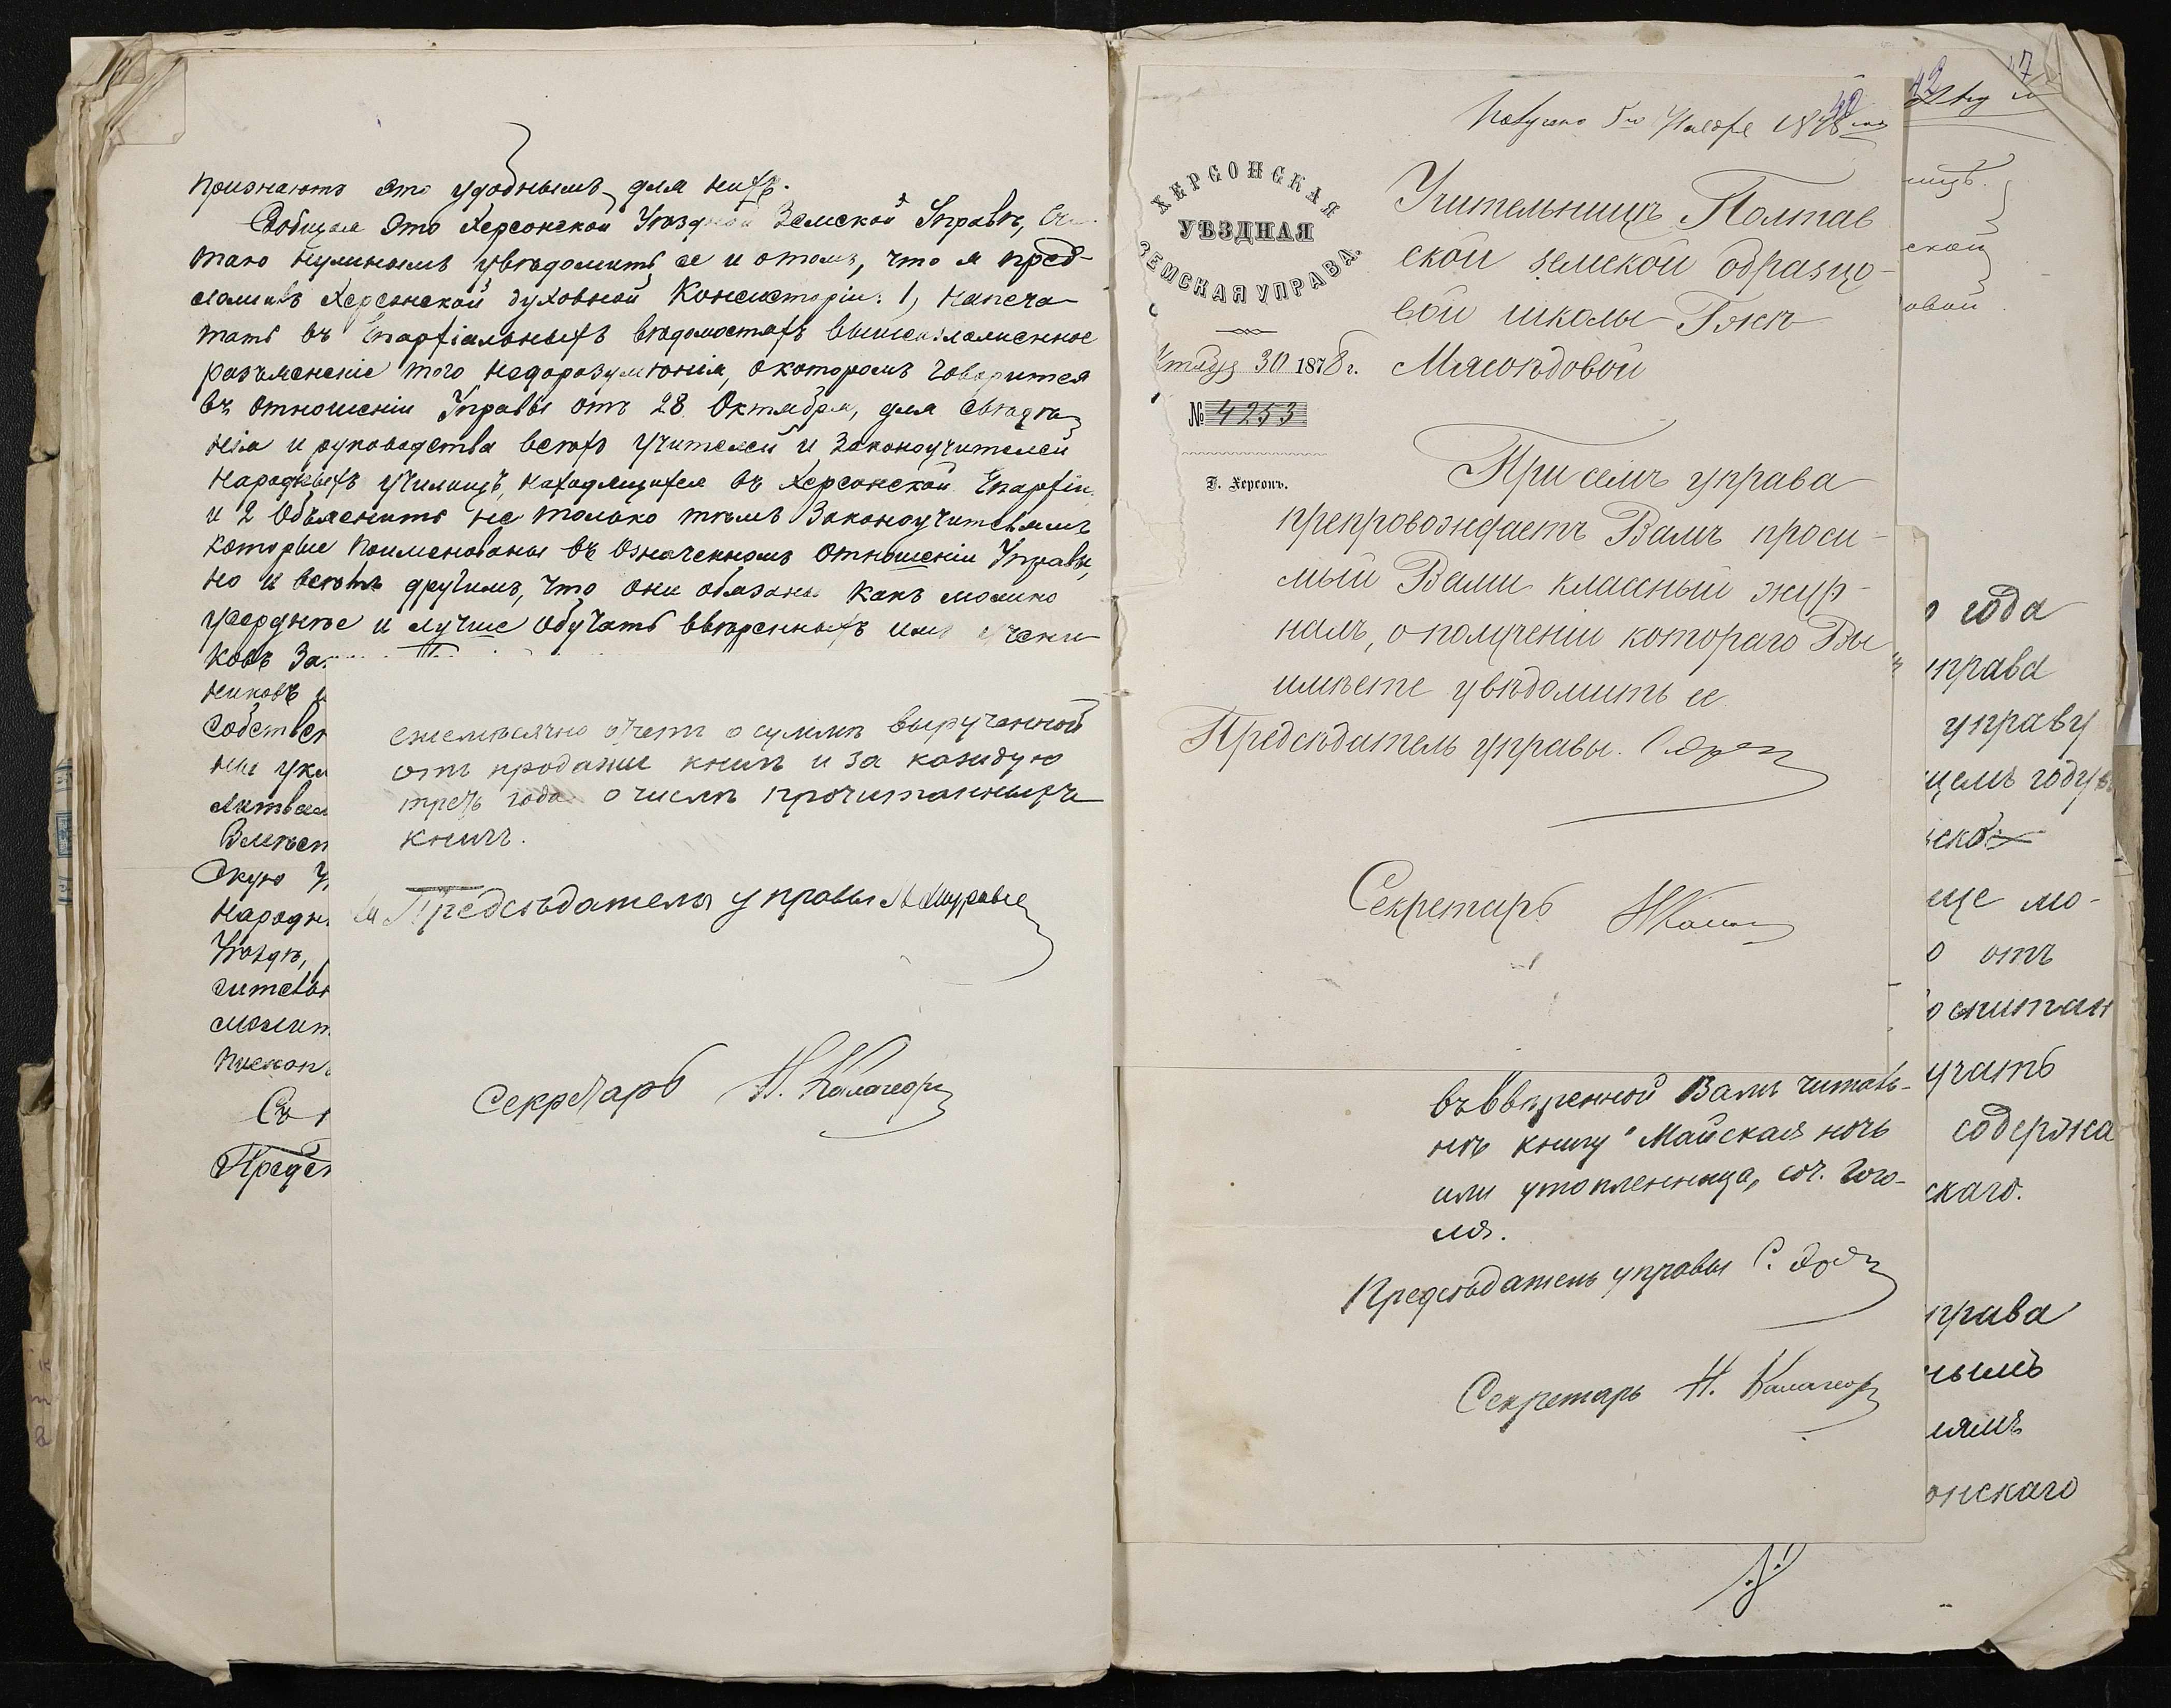 признаютъ это удобнымъ для нихъ.
Сообщая это Херсонской Уѣздной Земской Управѣ, Счи
таю нужнымъ увѣдомить ее и о томъ, что я пред-
ложилъ Херсонской духовной Консисторіи: 1, напеча
тать въ Епархіальныхъ вѣдомостяхъ вышеизложенное
разъясненіе того недоразумѣнія, о которомъ говорится
въ отношеніи Управы отъ 28 Октября, для свѣдѣ
нія и руководства всѣхъ учителей и законоучителей
народныхъ училищъ, находящихся въ Херсонской Епархіи
и 2 Объяснить не только тѣмъ Законоучителямъ
которые поименованы въ означенномъ отношеніи Управы,
но и всѣмъ другимъ, что они обязаны какъ можно
усерднѣе и лучше обучать ввѣренныхъ имъ учени
ковъ За
никовъ
собствен
ны ука
литвен
Вмѣст
скую У
народн
Уѣздѣ,
чителя
можит
пископ
Съ
Предсѣ
ежемѣсячно отчетъ о суммѣ вырученной
отъ продажи книгъ и за каждую
треть года о числѣ прочитанныхъ
книгъ.
Предсѣдателя управы
Секретарь Н. Калагеорг
42
47
40
Получено 5го Ноября 1878
ХЕРСОНСКАЯ
УѢЗДНАЯ
ЗЕМСКАЯ УПРАВА.
Октября 30 1878 г.
№ 4253
Г. Херсонъ.
Учительницѣ Полтав
ской земской образцо-
вой школы Г-жѣ
Мясоѣдовой
При семъ управа
препровождаетъ Вамъ проси-
мый Вами классный жур-
налъ, о полученіи котораго Вы
имѣете увѣдомить ее.
Предсѣдатель управы.
Секретарь Н Кала
въ ввѣренной Вамъ читаль-
нѣ книгу "Майская ночь
или утопленница, соч. Гого-
ля.
Предсѣдатель управы С.
Секретарь Н. Калагеорг
ницѣ.
ской
овой
года
управа
управу
щемъ году
ско
ще мо-
отъ
оспитан
учать
содержа
скаго.
права
нымъ
лямъ
онскаго